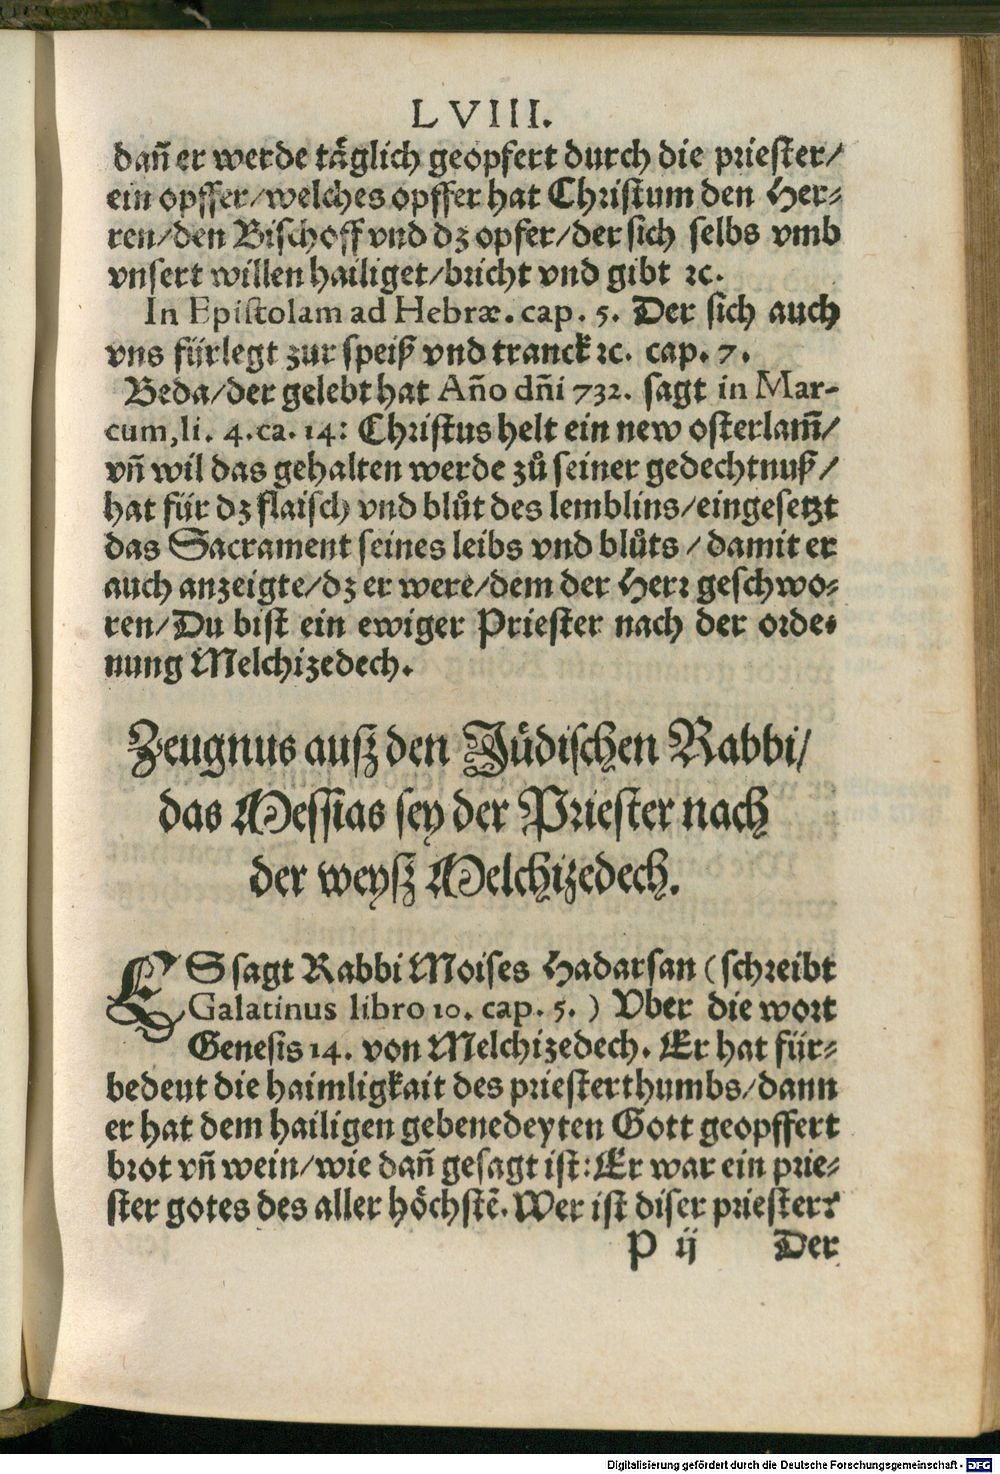 LVIII.
dañ er werde täglich geopfert durch die priester/
ein opffer/welches opffer hat Christum den Her⸗
ren/den Bischoff vnd dz opfer/der sich selbs vmb
vnsert willen hailiget/bricht vnd gibt ⁊c.
In Epistolam ad Hebræ. cap. 5. Der sich auch
vns fürlegt zur speiß vnd tranck ⁊c. cap. 7.
Beda/der gelebt hat Año dñi 732. sagt in Mar-
cum, li. 4. ca. 14: Christus helt ein new osterlam̃/
vñ wil das gehalten werde zů seiner gedechtnuß/
hat für dz flaisch vnd blůt des lemblins/eingesetzt
das Sacrament seines leibs vnd blůts/damit er
auch anzeigte/dz er were/dem der Herꝛ geschwo⸗
ren/Du bist ein ewiger Priester nach der orde⸗
nung Melchizedech.
Zeugnus ausz den Jüdischen Rabbi/
das Messias sey der Priester nach
der weysz Melchizedech.
ES sagt Rabbi Moises Hadarsan (schreibt
Galatinus libro 10. cap. 5.) Vber die wort
Genesis 14. von Melchizedech. Er hat für⸗
bedeut die haimligkait des priesterthumbs/dann
er hat dem hailigen gebenedeyten Gott geopffert
brot vñ wein/wie dañ gesagt ist: Er war ein prie⸗
ster gotes des aller höchstẽ. Wer ist diser priester?
P ij Der
Digitalisierung gefördert durch die Deutsche Forschungsgemeinschaft - DFG